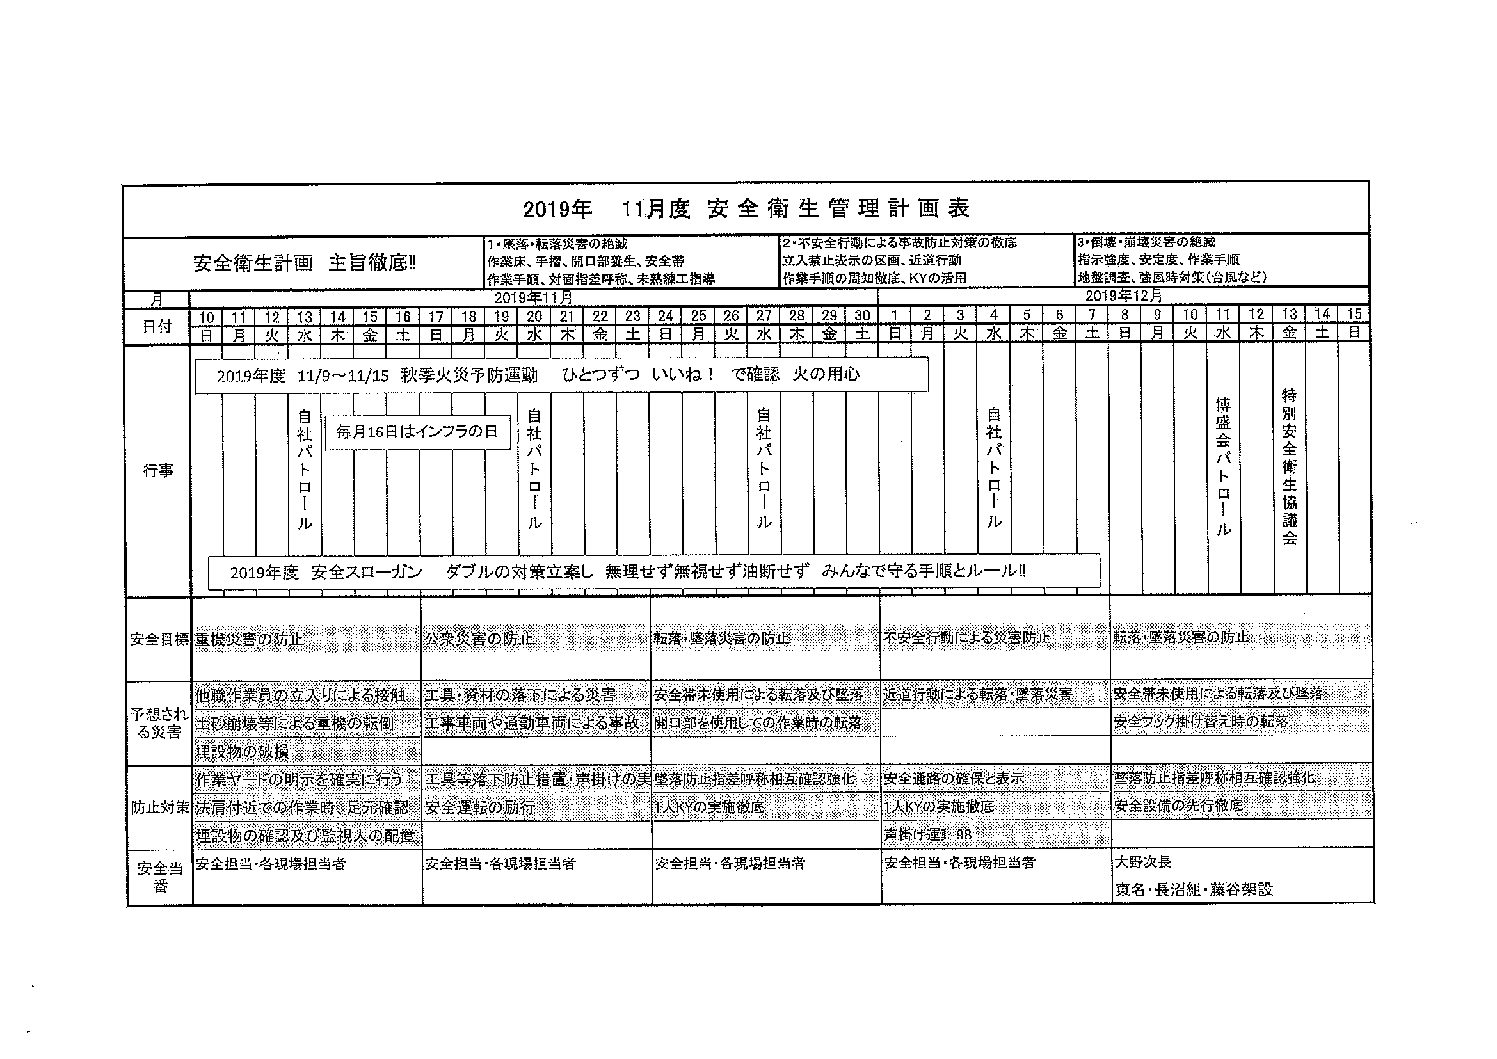 2019年　11月度 安全衛生管理計画表
安全衛生計画　主旨徹底!!
1・墜落・転落災害の絶滅
作業床、手摺、開口部養生、安全帯
作業手順、対面指差呼称、未熟練工指導
2・不安全行動による事故防止対策の徹底
立入禁止表示の区画、近道行動
作業手順の周知徹底、KYの活用
3・倒壊・崩壊災害の絶滅
指示強度、安定度、作業手順
地盤調査、強風時対策(台風など)
月 2019年11月 2019年12月
日付 10 11 12 13 14 15 16 17 18 19 20 21 22 23 24 25 26 27 28 29 30 1 2 3 4 5 6 7 8 9 10 11 12 13 14 15
日 月 火 水 木 金 土 日 月 火 水 木 金 土 日 月 火 水 木 金 土 日 月 火 水 木 金 土 日 月 火 水 木 金 土 日
行事
2019年度 11/9～11/15 秋季火災予防運動　ひとつずつ いいね！ で確認 火の用心
自社パトロール
毎月16日はインフラの日
自社パトロール
自社パトロール
自社パトロール
博盛会パトロール
特別安全衛生協議会
2019年度 安全スローガン　ダブルの対策立案し 無理せず無視せず油断せず みんなで守る手順とルール!!
安全目標 重機災害の防止 公衆災害の防止 転落・墜落災害の防止 不安全行動による災害防止 転落・墜落災害の防止
予想される災害
他職作業員の立入りによる接触 工具・資材の落下による災害 安全帯未使用による転落及び墜落 近道行動による転落・墜落災害 安全帯未使用による転落及び墜落
土砂崩壊等による重機の転倒 工事車両や通勤車両による事故 開口部を使用しての作業時の転落 安全フック掛け替え時の転落
埋設物の破損
防止対策
作業ヤードの明示を確実に行う 工具等落下防止措置・声掛けの実 墜落防止指差呼称相互確認強化 安全通路の確保と表示 墜落防止指差呼称相互確認強化
法肩付近での作業時、足元確認 安全運転の励行 1人KYの実施徹底 1人KYの実施徹底 安全設備の先行徹底
埋設物の確認及び監視人の配置 声掛け運動
安全当番
安全担当・各現場担当者 安全担当・各現場担当者 安全担当・各現場担当者 安全担当・各現場担当者 大野次長
東名・長沼組・藤谷架設